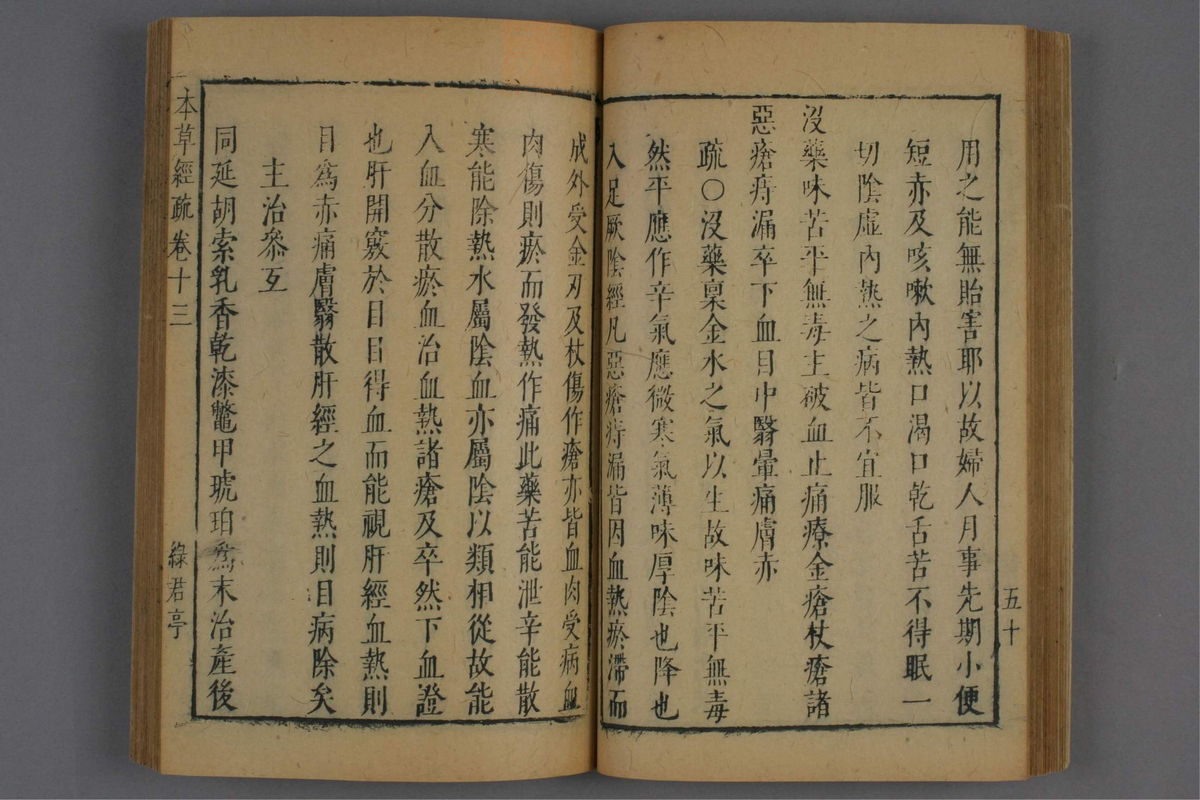 五十
用之能無貽害耶以故婦人月事先期小便
短赤及咳嗽內熱口渴口乾舌苦不得眠一
切陰虛內熱之病皆不宜服
沒藥味苦平無毒主破血止痛療金瘡杖瘡諸
惡瘡痔漏卒下血目中翳暈痛膚赤
疏○沒藥稟金水之氣以生故味苦平無毒
然平應作辛氣應微寒氣薄味厚陰也降也
入足厥陰經凡惡瘡痔漏皆因血熱瘀滯而
成外受金刃及杖傷作瘡亦皆血肉受病血
肉傷則瘀而發熱作痛此藥苦能泄辛能散
寒能除熱水屬陰血亦屬陰以類相從故能
入血分散瘀血治血熱諸瘡及卒然下血證
也肝開竅於目目得血而能視肝經血熱則
目爲赤痛膚翳散肝經之血熱則目病除矣
主治叅互
同延胡索乳香乾漆鼈甲琥珀爲末治產後
本草經疏卷十三
綠君亭